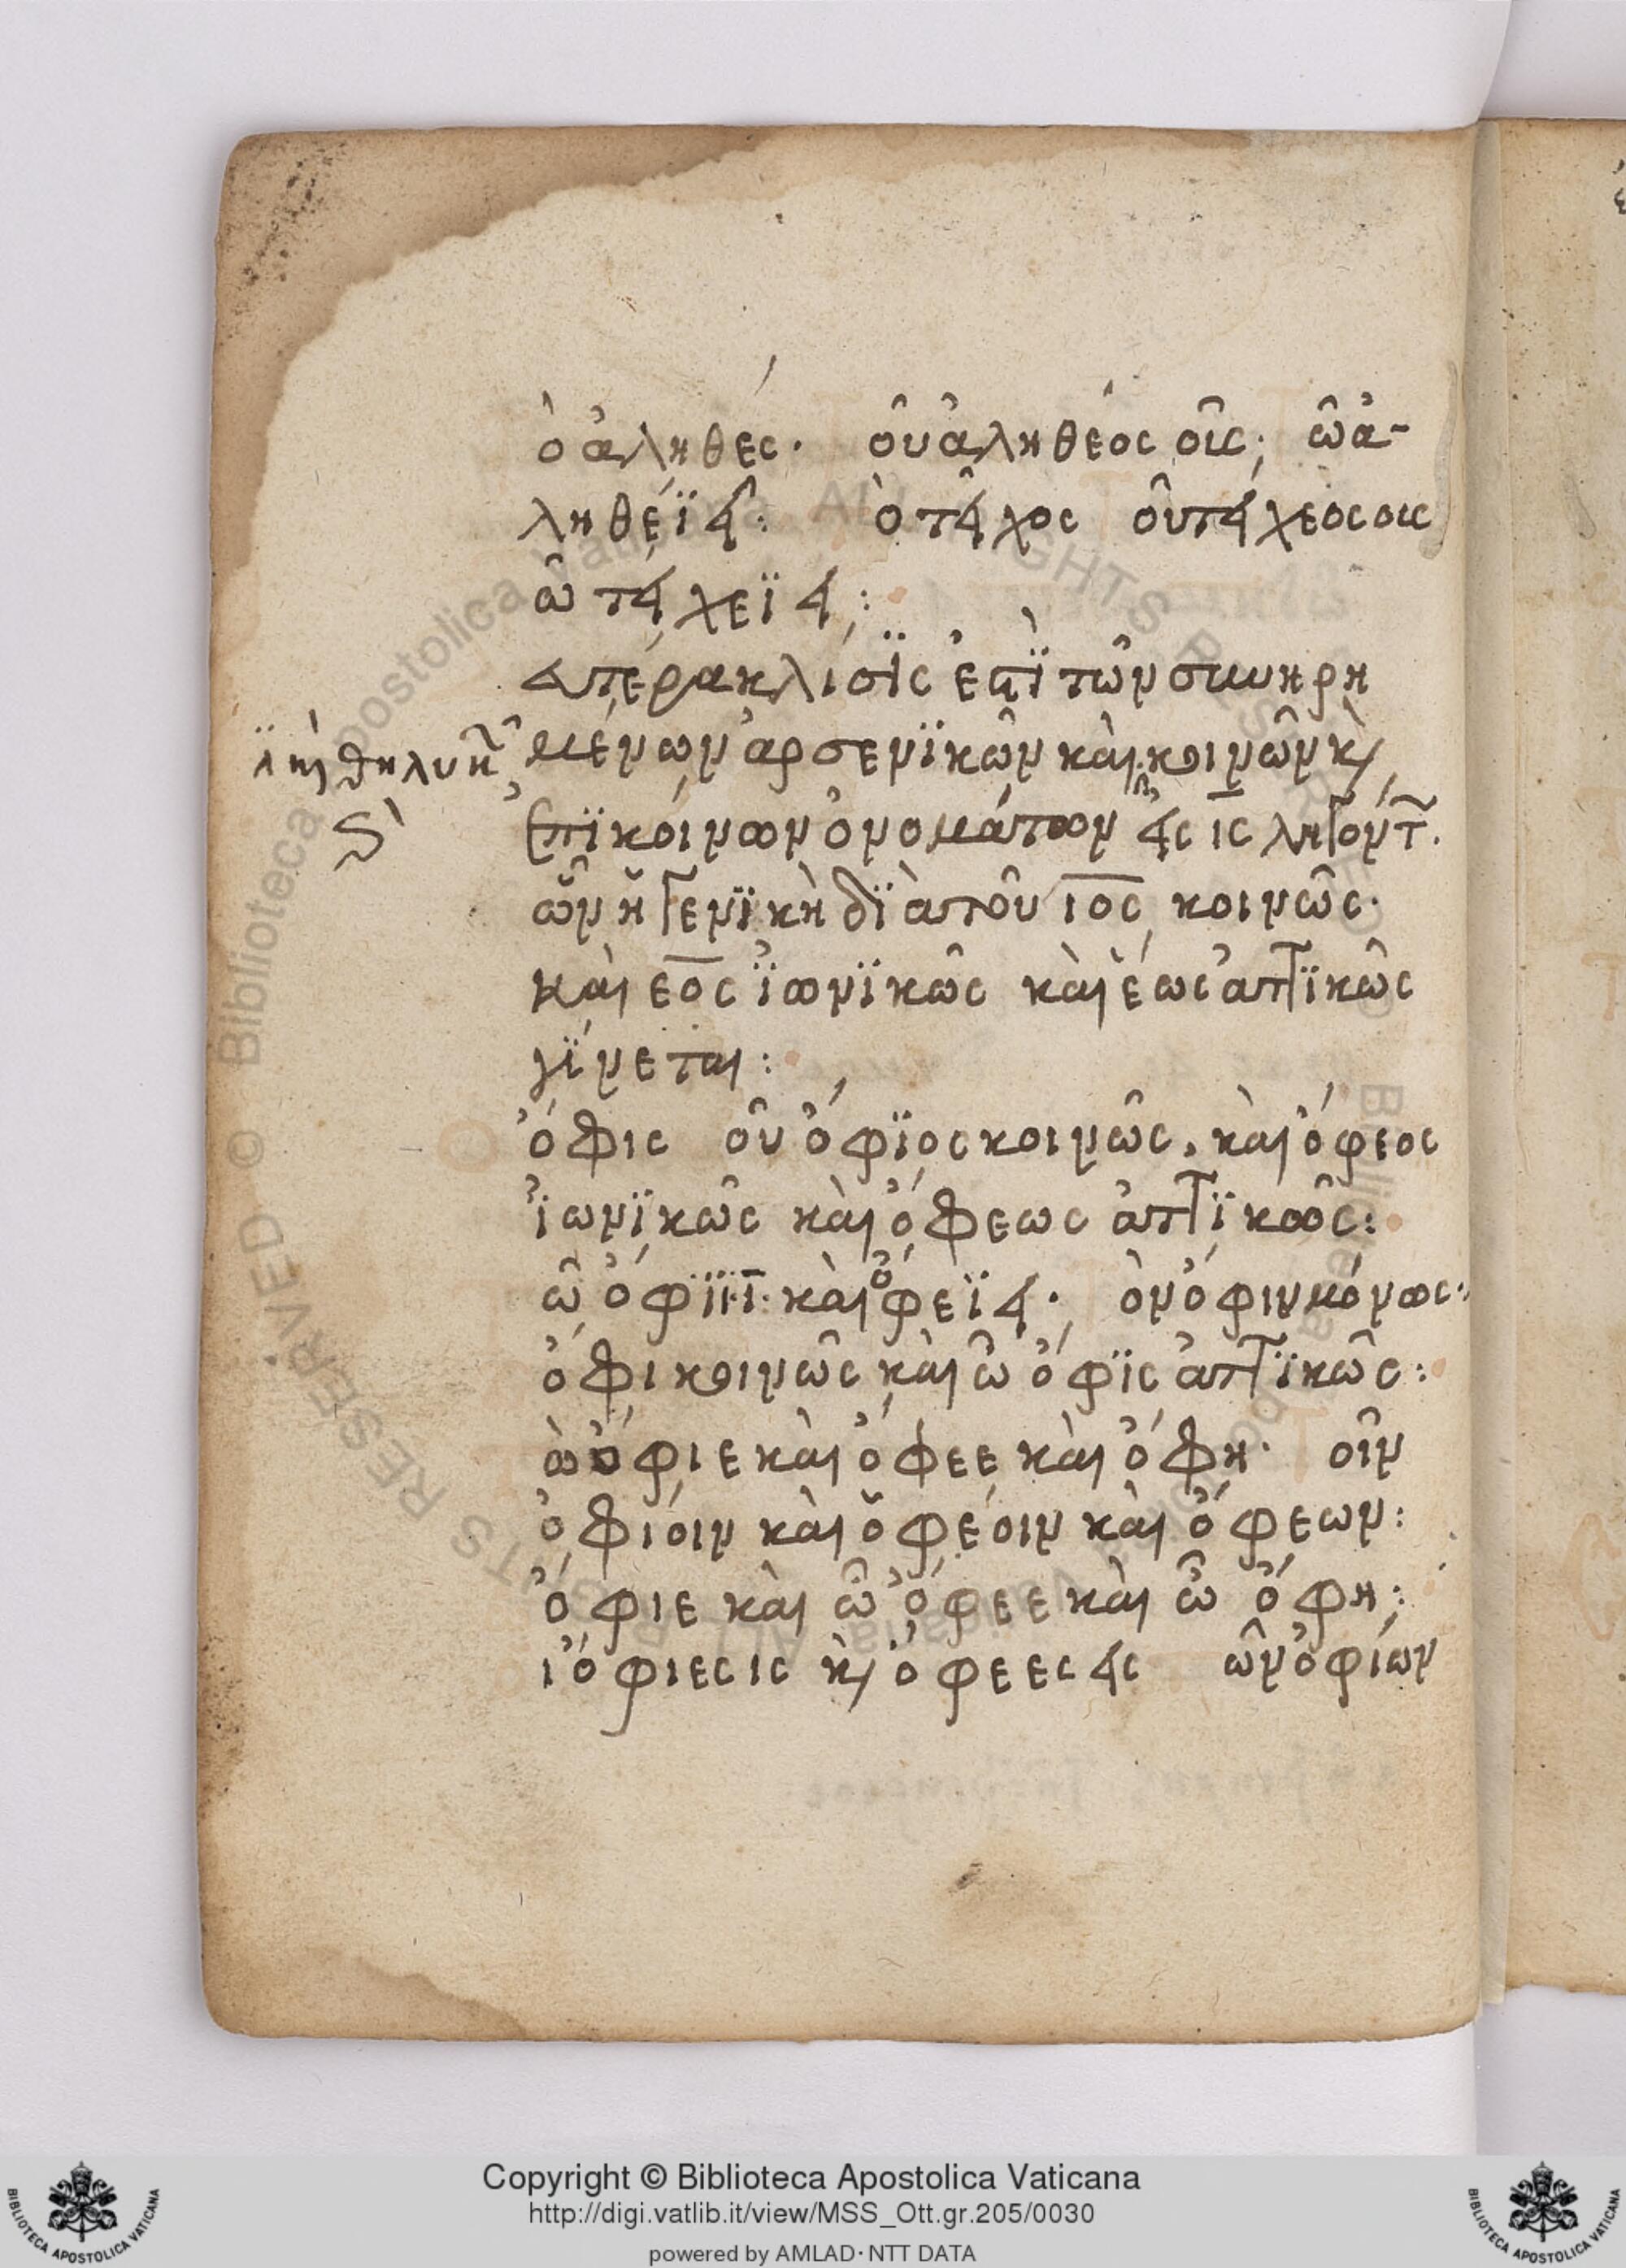 ὁ ἀληθές. οῦ ἀληθέος οις; ῶ ἀ-
ληθέϊ α: ὁ τάχος οῦ τάχεος οις
ῶ τάχεϊ α:
ετέρα κλίσϊς ἐπὶ τῶν συνηρη
μένων ἀρσενϊκῶν καὶ κοινῶν κὶ
ϊ κὴ θηλυκῶ
ἐπϊκοίνων ὀνομάτων εἰς ις ληγόντ.
ς
ῶν ἡ γενϊκὴ δϊὰ τοῦ ιος κοινῶς.
καὶ εος ϊωνϊκῶς καὶ έως ἀττϊκῶς
γίνεται:
ὄφις οῦ ὄφϊος κοινῶς. καὶ ὄφεος
ἰωνϊκῶς καὶ ὄφεως ἀττϊκῶς:
ῶ ὄφϊϊ ϊ καὶ ὄφεϊ ει. ὸν ὄφιν μόνως:
ὄφι κοινῶς καὶ ῶ ὄφϊς ἀττϊκῶς:
ὼ ὄφιε καὶ ὄφεε καὶ ὄφη. οῖν
ὀφίοιν καὶ ὀφέοιν καὶ ὄφεων:
ὄφιε καὶ ῶ ὄφεε καὶ ῶ ὄφη:
ι ὄφιες ις κὶ ὄφεες εις ῶν ὀφίων
Copyright © Biblioteca Apostolica Vaticana
http://digi.vatlib.it/view/MSS_Ott.gr.205/0030
powered by AMLAD·NTT DATA